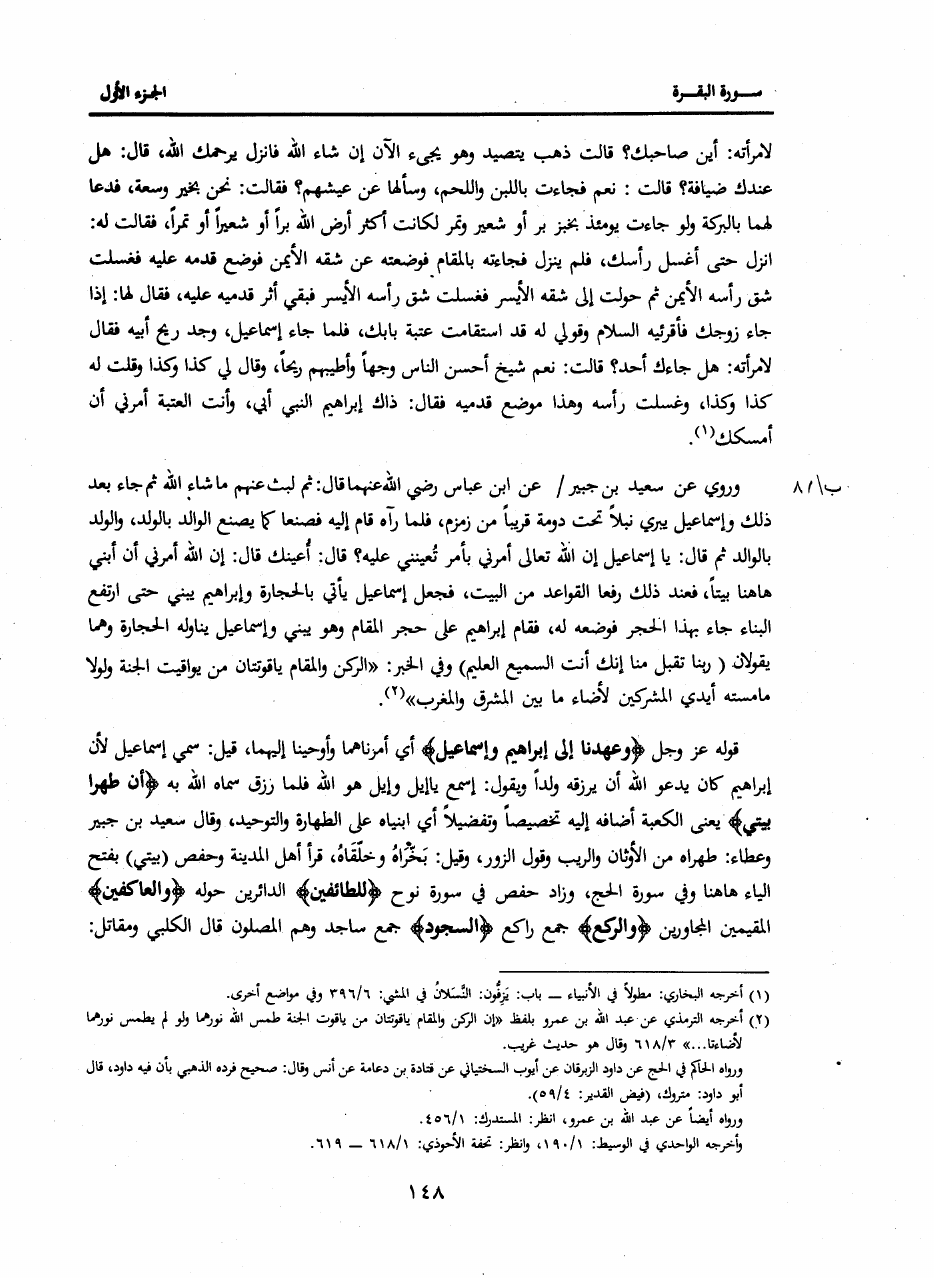 سـورة البقـرة
الجزء الأول
لامرأته: أين صاحبك؟ قالت ذهب يتصيد وهو يجيء الآن إن شاء الله فانزل يرحمك الله، قال: هل
عندك ضيافة؟ قالت : نعم فجاءت باللبن واللحم، وسألها عن عيشهم؟ فقالت: نحن بخير وسعة، فدعا
لهما بالبركة ولو جاءت يومئذ بخبز بر أو شعير وتمر لكانت أكثر أرض الله براً أو شعيراً أو تمراً، فقالت له:
انزل حتى أغسل رأسك، فلم ينزل فجاءته بالمقام فوضعته عن شقه الأيمن فوضع قدمه عليه فغسلت
شق رأسه الأيمن ثم حولت إلى شقه الأيسر فغسلت شق رأسه الأيسر فبقي أثر قدميه عليه، فقال لها: إذا
جاء زوجك فأقرئيه السلام وقولي له قد استقامت عتبة بابك، فلما جاء إسماعيل، وجد ريح أبيه فقال
لامرأته: هل جاءك أحد؟ قالت: نعم شيخ أحسن الناس وجهاً وأطيبهم ريحاً، وقال لي كذا وكذا وقلت له
كذا وكذا، وغسلت رأسه وهذا موضع قدميه فقال: ذاك إبراهيم النبي أبي، وأنت العتبة أمرني أن
أمسكك(١).
وروي عن سعيد بن جبير / عن ابن عباس رضي الله عنهما قال: ثم لبث عنهم ما شاء الله ثم جاء بعد ٨/ب
ذلك وإسماعيل يبري نبلاً تحت دومة قريباً من زمزم، فلما رآه قام إليه فصنعا كما يصنع الوالد بالولد، والولد
بالوالد ثم قال: يا إسماعيل إن الله تعالى أمرني بأمر تُعينني عليه؟ قال: أُعينك قال: إن الله أمرني أن أبني
هاهنا بيتاً، فعند ذلك رفعا القواعد من البيت، فجعل إسماعيل يأتي بالحجارة وإبراهيم يبني حتى ارتفع
البناء جاء بهذا الحجر فوضعه له، فقام إبراهيم على حجر المقام وهو يبني وإسماعيل يناوله الحجارة وهما
يقولان ( ربنا تقبل منا إنك أنت السميع العليم) وفي الخبر: «الركن والمقام ياقوتتان من يواقيت الجنة ولولا
مامسته أيدي المشركين لأضاء ما بين المشرق والمغرب»(٢).
قوله عز وجل ﴿وعهدنا إلى إبراهيم وإسماعيل﴾ أي أمرناهما وأوحينا إليهما، قيل: سمي إسماعيل لأن
إبراهيم كان يدعو الله أن يرزقه ولداً ويقول: إسمع ياإيل وإيل هو الله فلما رزق سماه الله به ﴿أن طهرا
بيتي﴾ يعنى الكعبة أضافه إليه تخصيصاً وتفضيلاً أي ابنياه على الطهارة والتوحيد، وقال سعيد بن جبير
وعطاء: طهراه من الأوثان والريب وقول الزور، وقيل: بَخِّرَاهُ وخلّقَاهُ، قرأ أهل المدينة وحفص (بيتي) بفتح
الياء هاهنا وفي سورة الحج، وزاد حفص في سورة نوح ﴿للطائفين﴾ الدائرين حوله ﴿والعاكفين﴾
المقيمين المجاورين ﴿والركع﴾ جمع راكع ﴿السجود﴾ جمع ساجد وهم المصلون قال الكلبي ومقاتل:
(١) أخرجه البخاري: مطولاً في الأنبياء ــ باب: يَزِفُّون: النَّسَلانُ في المشي: ٣٩٦/٦ وفي مواضع أخرى.
(٢) أخرجه الترمذي عن عبد الله بن عمرو بلفظ «إن الركن والمقام ياقوتتان من ياقوت الجنة طمس الله نورهما ولو لم يطمس نورهما
لأضاءتا...» ٦١٨/٣ وقال هو حديث غريب.
ورواه الحاكم في الحج عن داود الزبرقان عن أيوب السختياني عن قتادة بن دعامة عن أنس وقال: صحيح فرده الذهبي بأن فيه داود، قال
أبو داود: متروك، (فيض القدير: ٥٩/٤).
ورواه أيضاً عن عبد الله بن عمرو، انظر: المستدرك: ٤٥٦/١.
وأخرجه الواحدي في الوسيط: ١٩٠/١، وانظر: تحفة الأحوذي: ٦١٨/١ ــ ٦١٩.
١٤٨